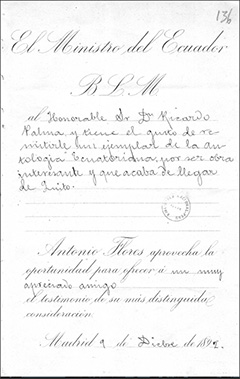 136
El Ministro del Ecuador
B. L. M
al Honorable Sr Dn Ricardo
Palma y tiene el gusto de re-
mitirle un ejemplar de la an-
tologia Ecuatoriana, por ser obra
interesante y que acaba de llegar
de Quito.
Antonio Flores aprovecha la
oportunidad para ofrecer á un muy
apreciado amigo
el testimonio de su más distinguida
consideración
Madrid 9 de Dicbre de 1892.